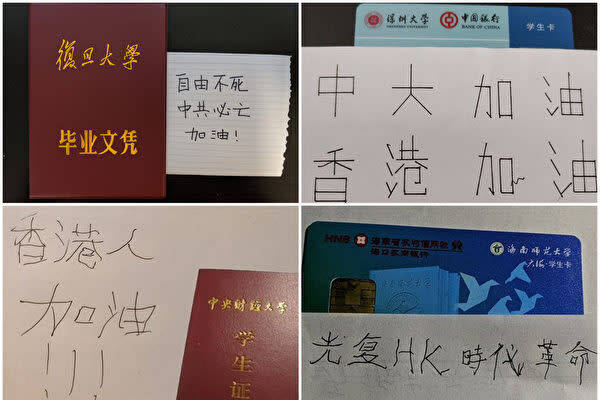 復旦大學
毕业文凭
自由不死
中共必亡
加油!
深圳大学
中国银行
BANK OF CHINA
学生卡
中大加油
香港加油
香港人
加油
!!!
中央财经大学
学生证
HNB
海南师范大学
学生卡
光复HK時代革命